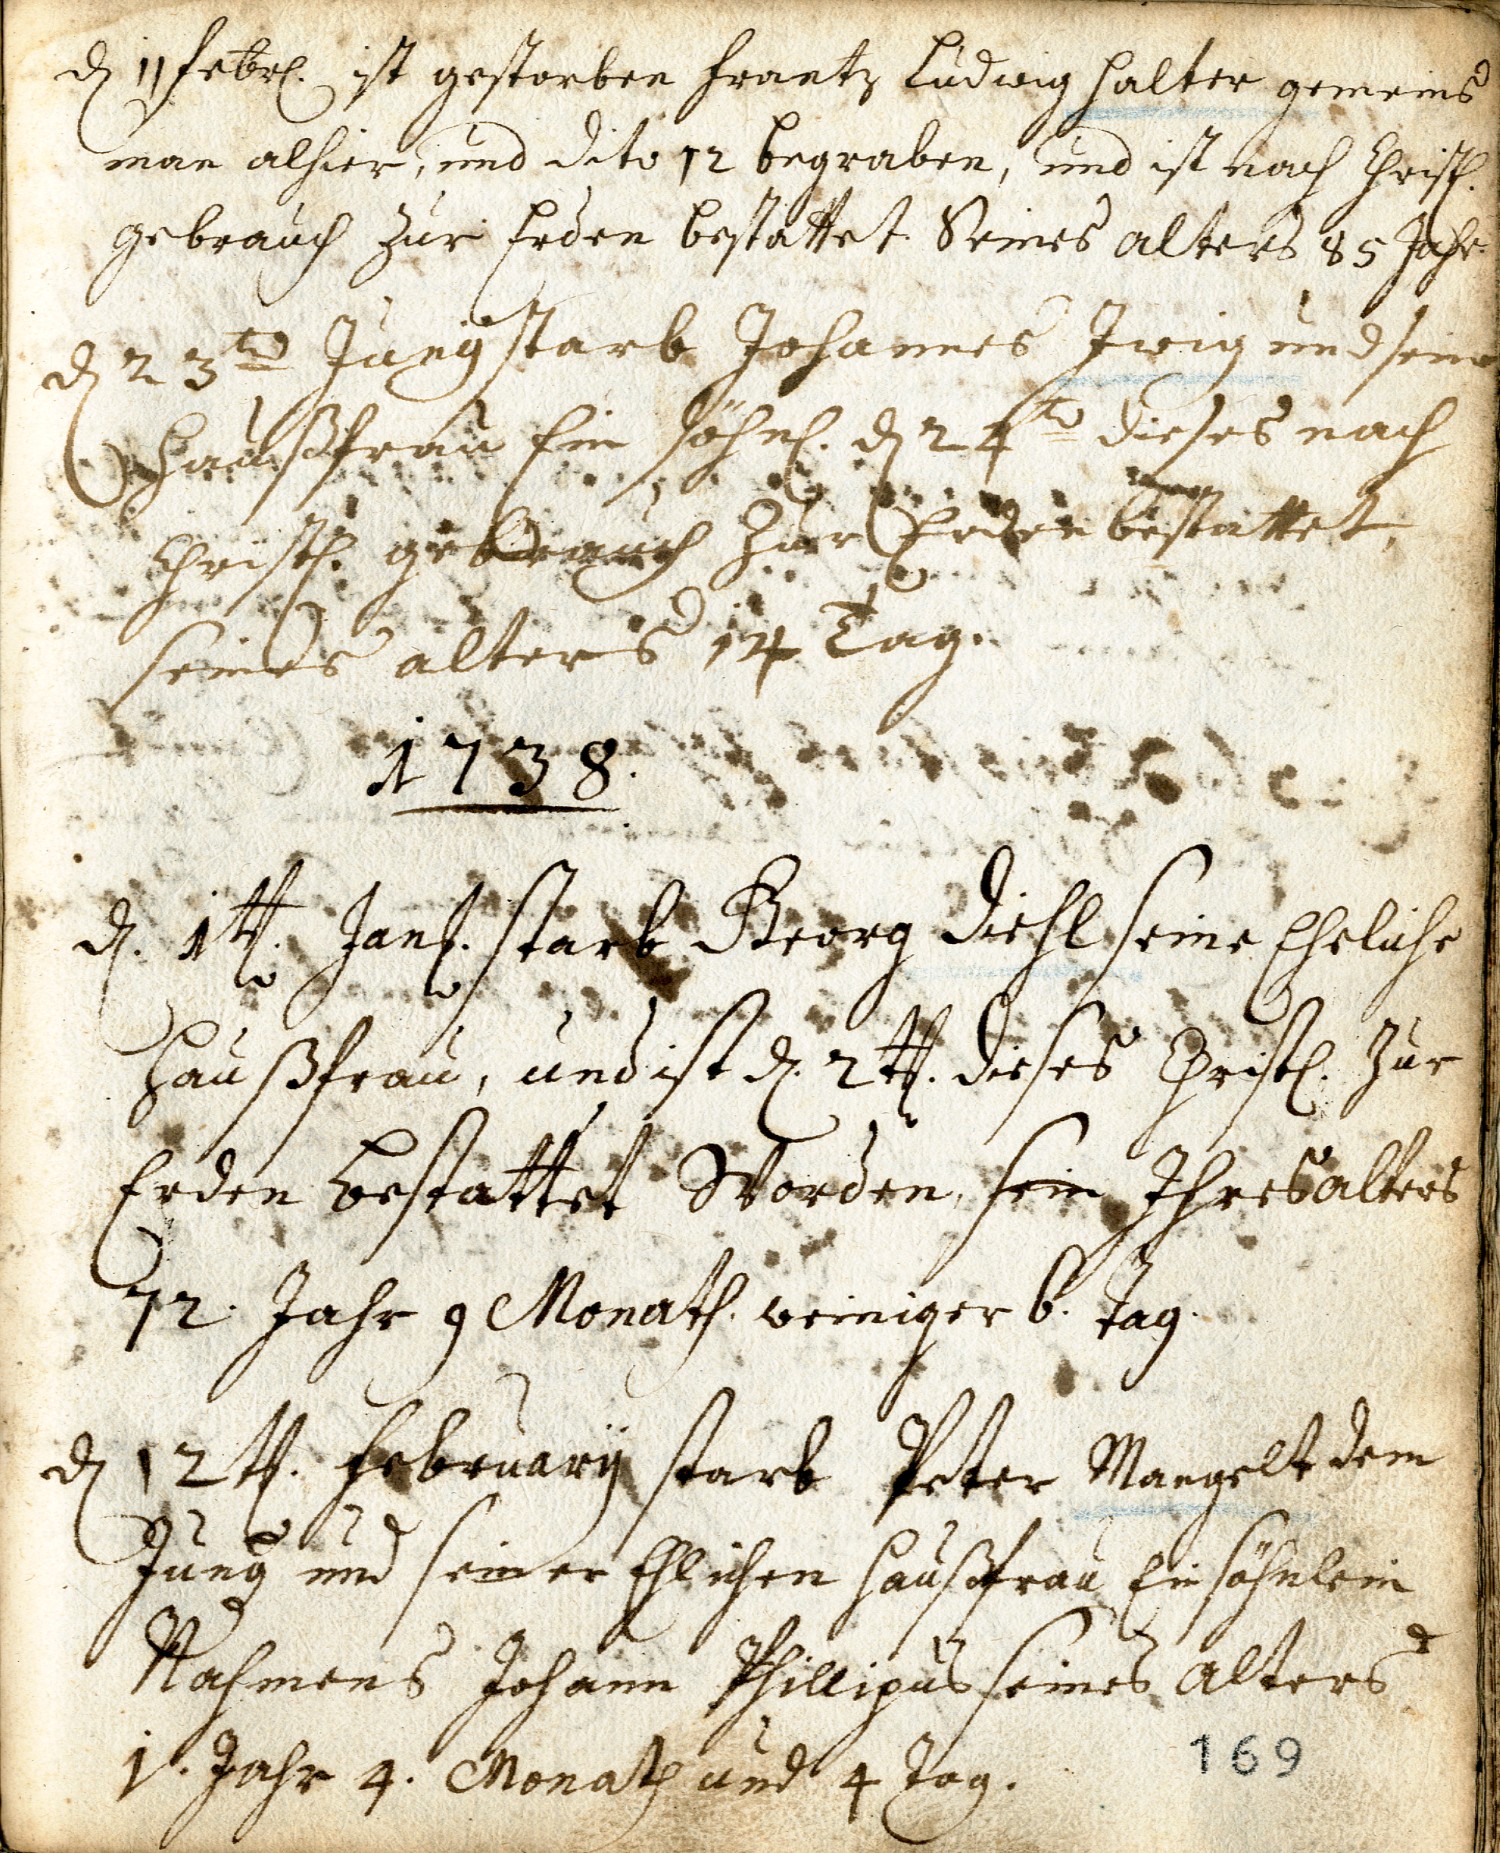 d 11 Febrl. ist gestorben Frantz Ludwig Halter gemeins
man alhier, und dito 12 begraben, und ist nach Christl.
gebrauch zur Erden bestattet. Seines alters 85 Jahr.
d 23td Jung starb Johannes Jwig und sein
haußfrau Ein söhnl. d 24td dieses nach
Christl. gebrauch zur Erden bestattet,
seines alters 14 Tag.
1738.
d. 1tt. Janl. starb Georg Diehl seine Eheliche
haußfrau, und ist d. 2tt. dieses Christl. zur
Erden bestattet Worden, sein Ihres alters
72. Jahr 9 Monath. weiniger 6. tag.
d 12tt. Februarÿ starb Peter Mangelt dem
Jung und seiner Ehlichen haußfrau Ein söhnlein
Nahmens Johann Phillipus seines alters
1. Jahr 4. Monath und 4 tag.
169